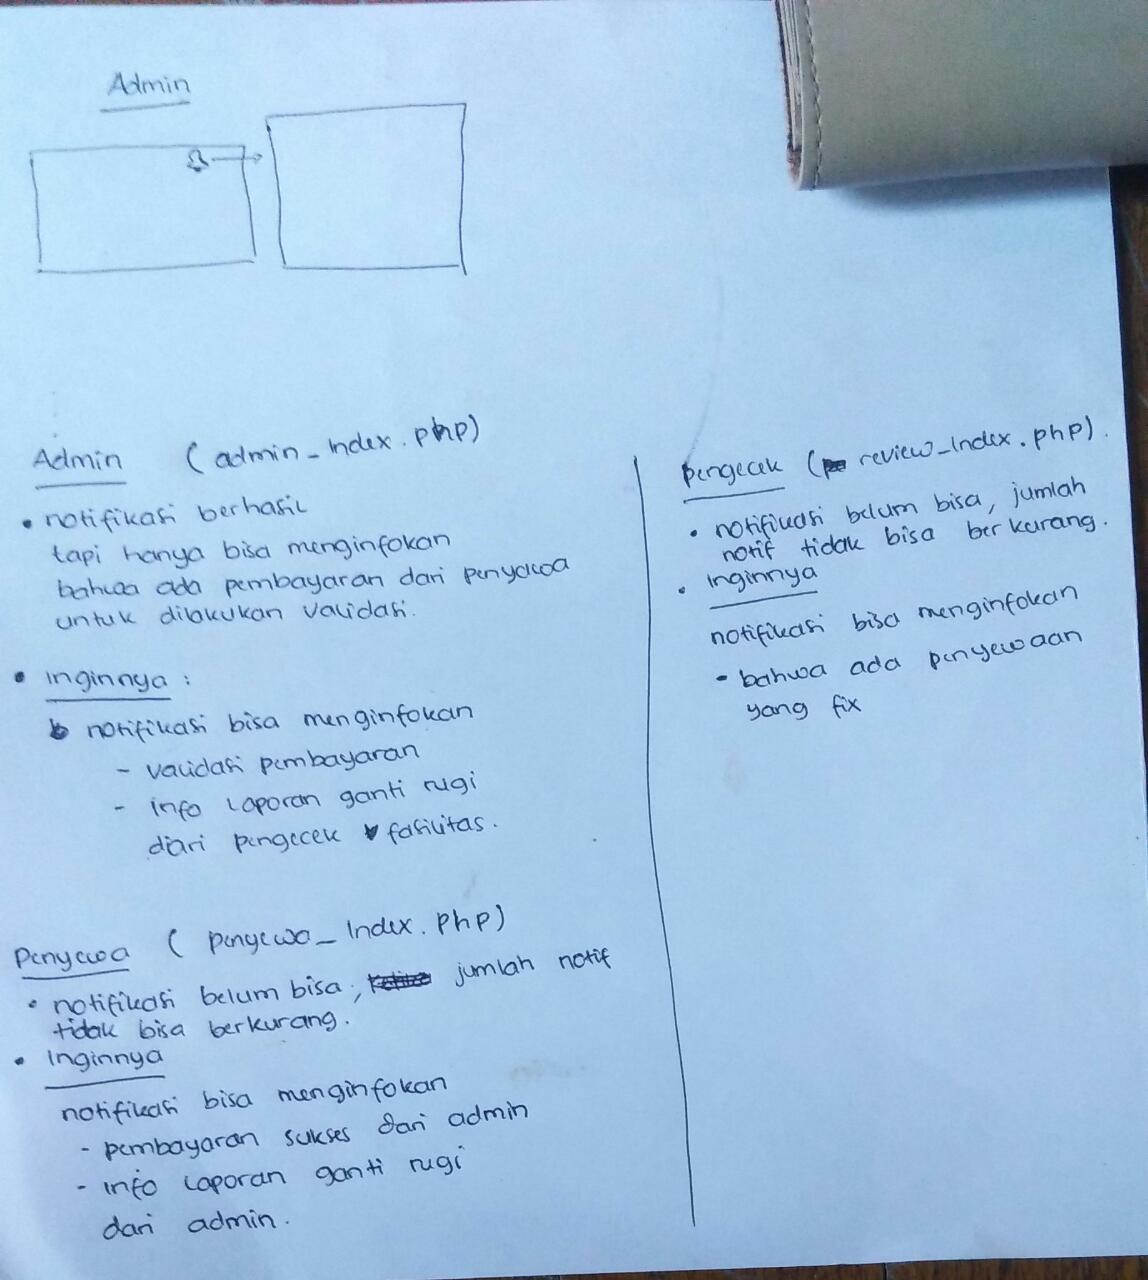 Admin
Admin ( admin_index.php)
• notifikasi berhasil
tapi hanya bisa menginfokan
bahwa ada pembayaran dari penyewa
untuk dilakukan validasi.
• Inginnya :
notifikasi bisa menginfokan
- validasi pembayaran
- info laporan ganti rugi
dari pengecek fasilitas.
Penyewa ( penyewa_Index.php)
• notifikasi belum bisa, jumlah notif
tidak bisa berkurang.
• Inginnya
notifikasi bisa menginfokan
- pembayaran sukses dari admin
- info laporan ganti rugi
dari admin.
pengecek ( review_index.php).
• notifikasi belum bisa, jumlah
notif tidak bisa berkurang.
• Inginnya
notifikasi bisa menginfokan
- bahwa ada penyewaan
yang fix